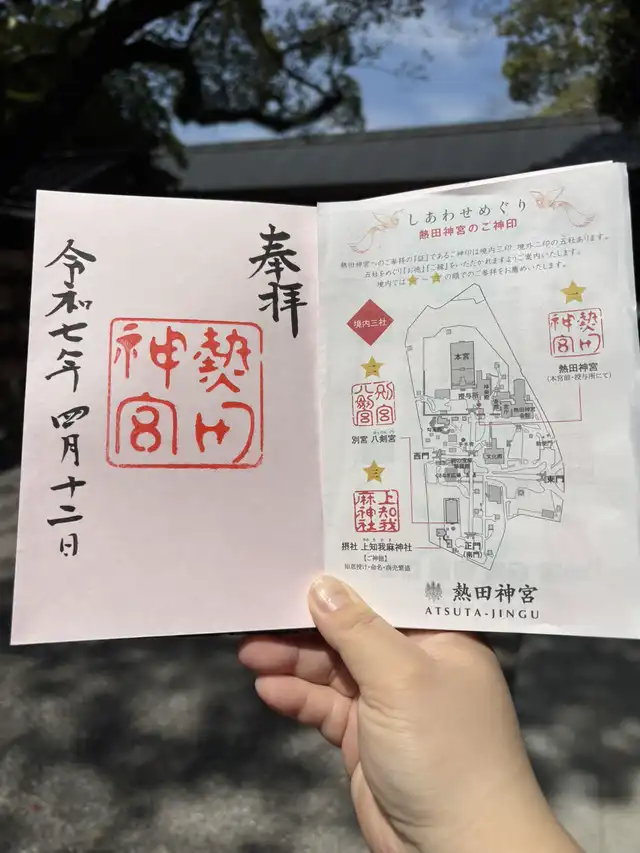 奉拝
熱田
神宮
令和七年 四月十二日
しあわせめぐり
熱田神宮のご神印
熱田神宮へのご参拝の「証」であるご神印は境内三印、境外二印の五社あります。
五社をめぐり「お徳」「ご縁」をいただかれますようご案内いたします。
境内では一〜三の順でのご参拝をお薦めいたします。
境内三社
一
熱田
神宮
熱田神宮
(本宮前・授与所にて)
二
別宮
八剣宮
別宮 八剣宮
三
上知我
麻神社
摂社 上知我麻神社
【ご神徳】
知恵授け・命名・商売繁盛
本宮
授与所
文化殿
西門
東門
正門
(南門)
熱田神宮
ATSUTA-JINGU